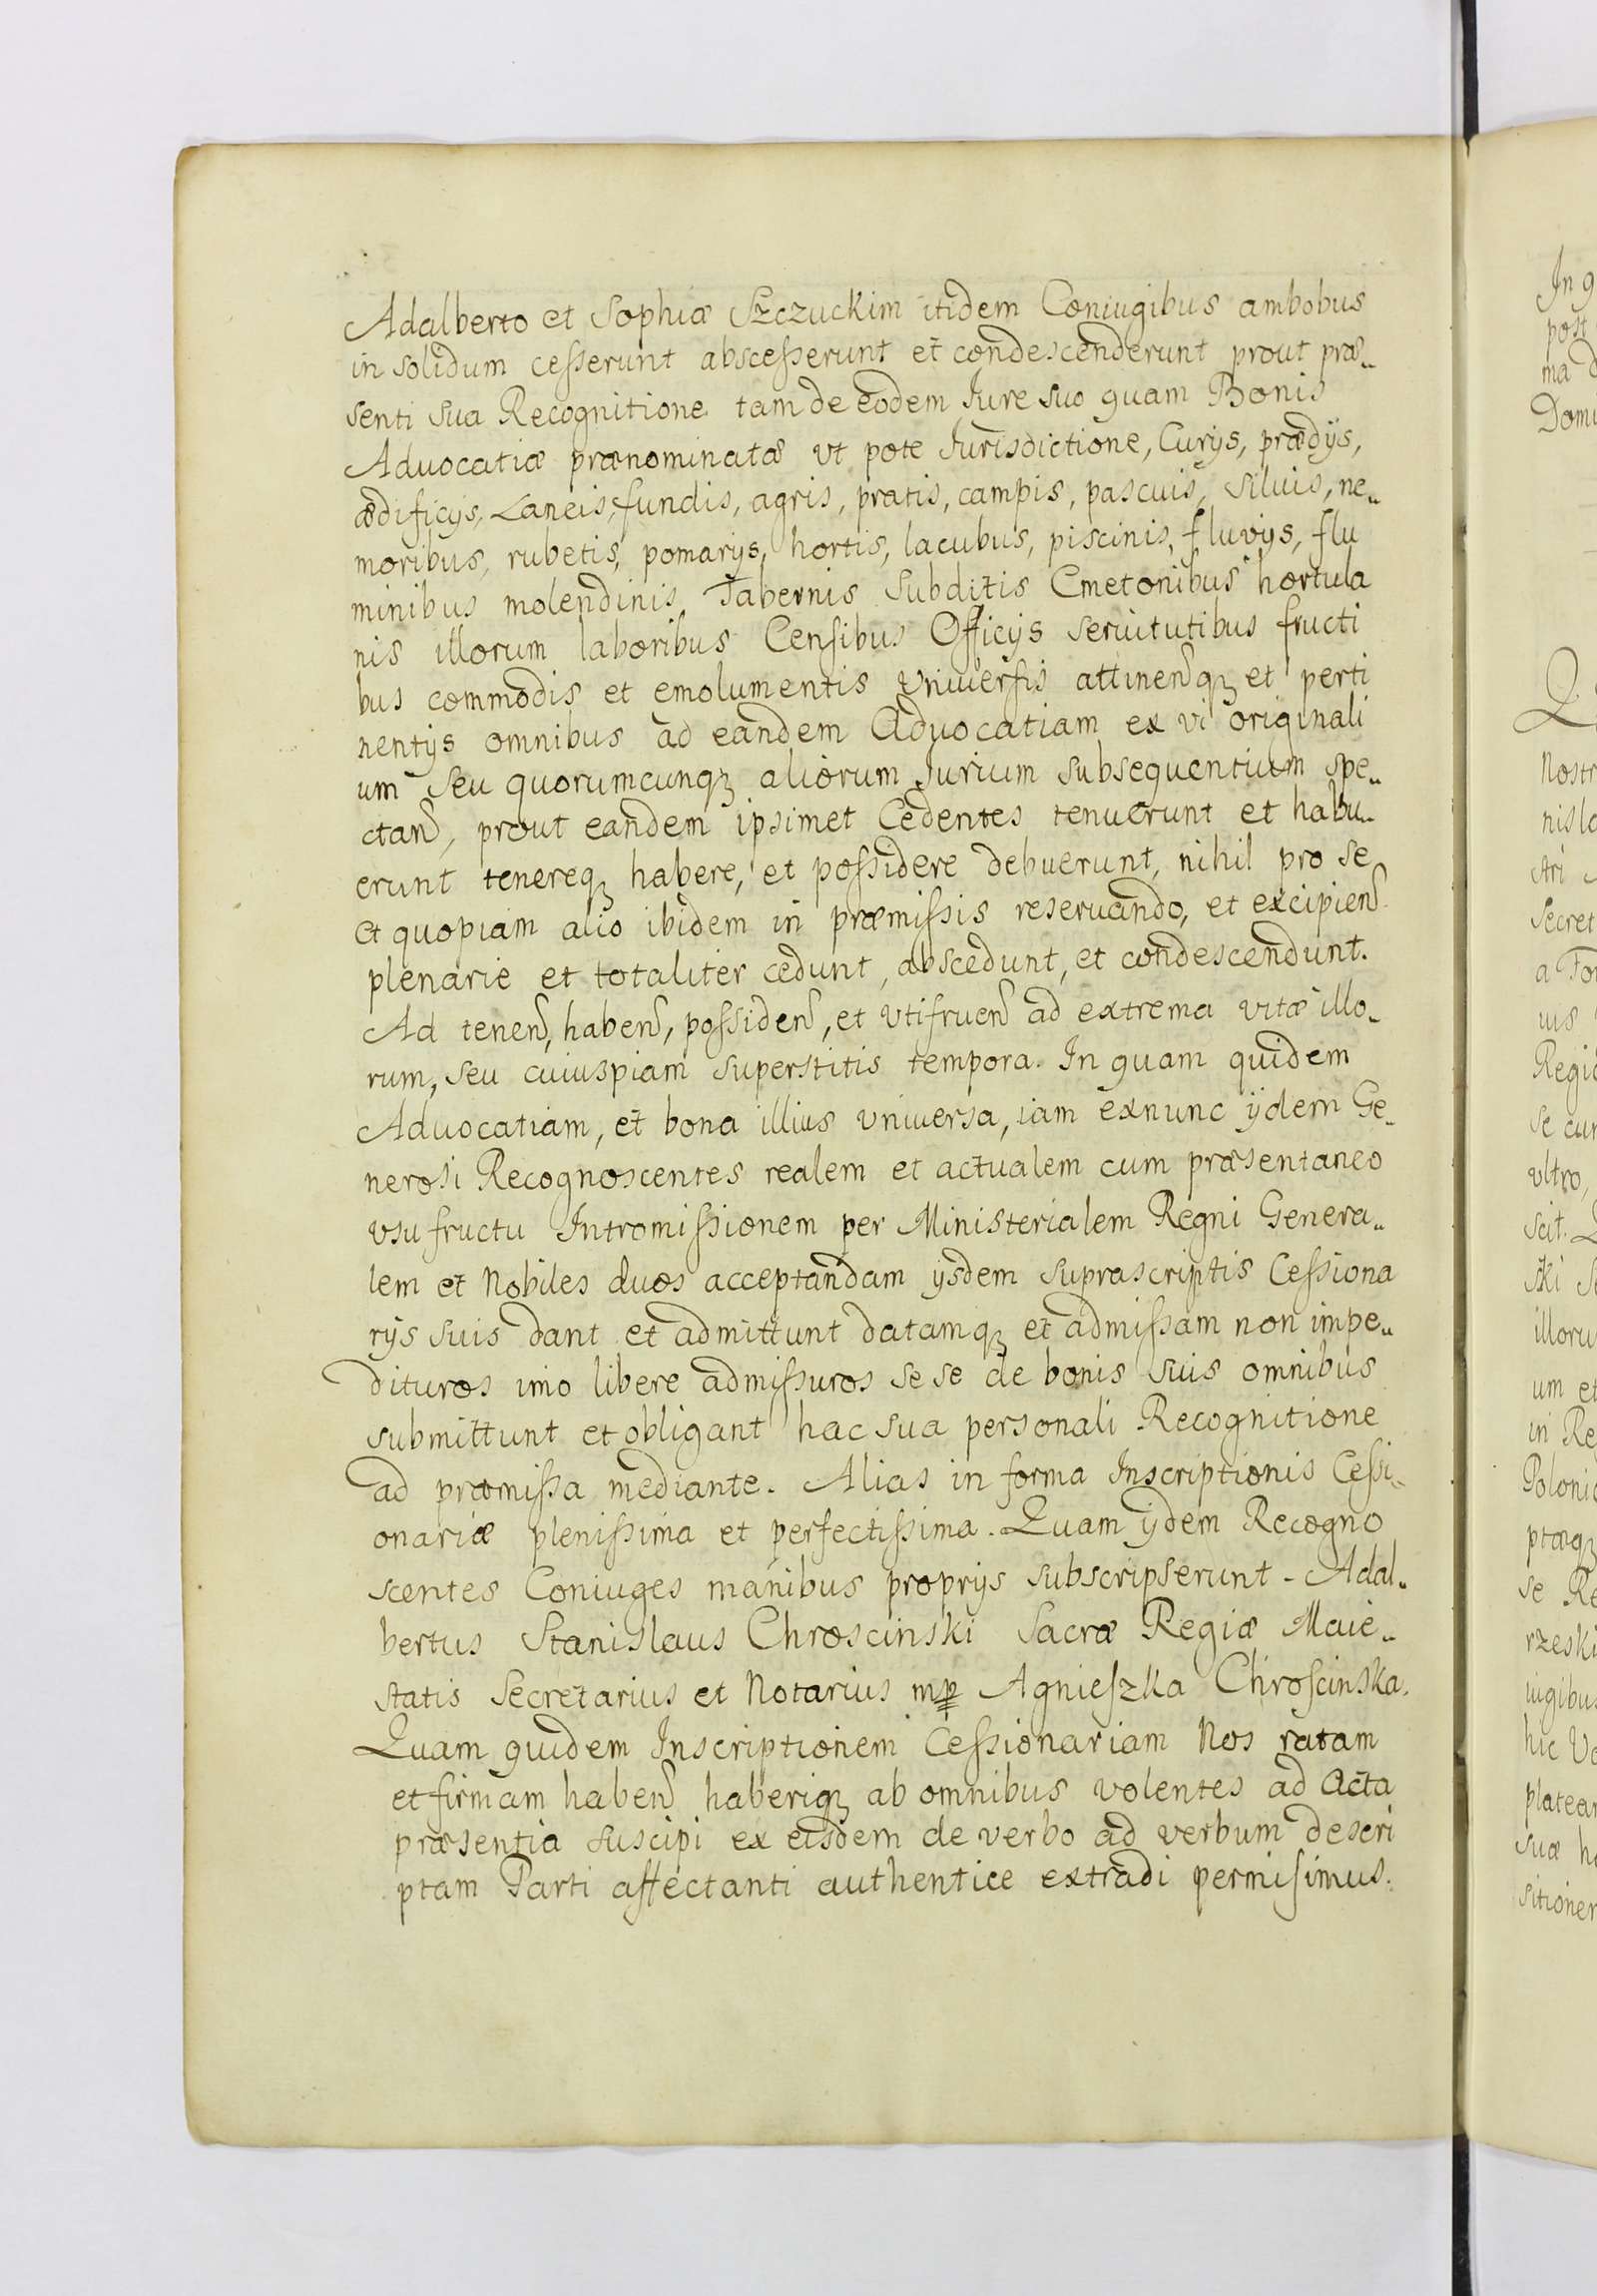 Adalberto et Sophiæ Szczuckim itidem Coniugibus ambobus
in solidum cesserunt abscesserunt et condescenderunt prout præ„
senti sua Recognitione tam de eodem Iure suo quam Bonis
Aduocatiæ prænominatæ vt pote Iurisdictione, Curijs, prædijs,
ædificijs, Laneis, fundis, agris, pratis, campis, pascuis, siluis, ne„
moribus, rubetis, pomarijs, hortis, lacubus, piscinis, fluvijs, flu
minibus molendinis, Tabernis Subditis Cmetonibus hortula
nis illorum laboribus Censibus Officijs seruitutibus fructi
bus commodis et emolumentis Vniuersis attinen qȝ et perti
nentijs omnibus ad eandem Aduocatiam ex vi originali
um seu quorumcunqȝ aliorum Jurium subsequentium spe„
ctan, prout eandem ipsimet Cedentes tenuerunt et habu„
erunt tenereqȝ habere, et possidere debuerunt, nihil pro se
et quopiam alio ibidem in præmissis reseruando, et excipien
plenarie et totaliter cedunt, abscedunt, et condescendunt.
Ad tenen, haben, possiden, et vtifruen ad extrema vitæ illo„
rum, seu cuiuspiam superstitis tempora. In quam quidem
Aduocatiam, et bona illius vniuersa, iam exnunc ijdem Ge„
nerosi Recognoscentes realem et actualem cum præsentaneo
vsufructu Intromissionem per Ministerialem Regni Genera„
lem et Nobiles duos acceptandam ijsdem suprascriptis Cessiona
rijs suis dant et admittunt datamqȝ et admissam non impe„
dituros imo libere admissuros se se de bonis suis omnibus
submittunt et obligant hac sua personali Recognitione
ad præmissa mediante. Alias in forma Inscriptionis Cessi„
onariæ plenissima et perfectissima. Quam ijdem Recogno
scentes Coniuges manibus proprijs subscripserunt - Adal„
bertus Stanislaus Chroscinski Sacræ Regiæ Maie„
statis Secretarius et Notarius mp Agnieszka Chroscinska.
Quam quidem Inscriptionem Cessionariam Nos ratam
et firmam haben haberiqȝ ab omnibus volentes ad Acta
præsentia suscipi ex eisdem de verbo ad verbum descri
ptam Parti affectanti authentice extradi permisimus.